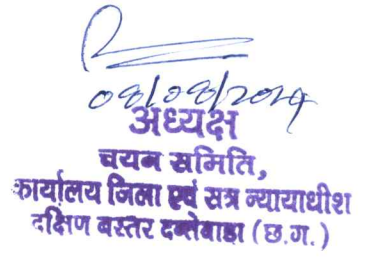 08/08/2024
अध्यक्ष
चयन समिति,
कार्यालय जिला एवं सत्र न्यायाधीश
दक्षिण बस्तर दन्तेवाड़ा (छ.ग.)